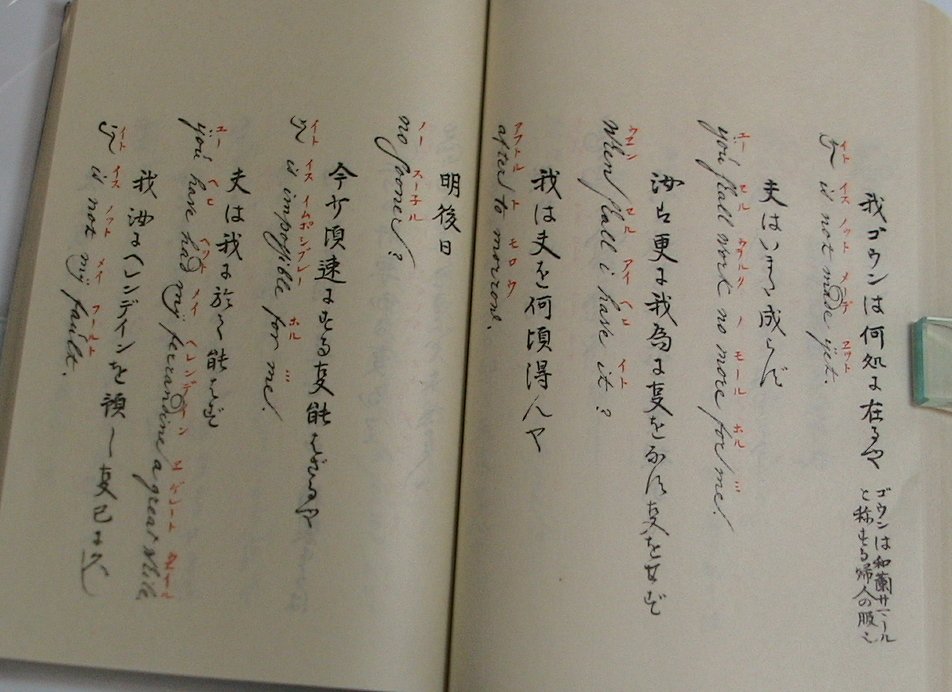 我ゴウンは何処に在るや
ゴウンは和蘭サ ール
と称する婦人の服也
イト イス ノット メーデ エット
It is not made yet.
夫はいまた成らず
ユー セル ウヲルク ノ モール ホル ミ
you shall work no more for me!
汝は更に我為に を 
ウエン セル アイ ヘヒ イト
When shall i have it?
我は夫を何頃得んや
アフトル ト モロウ
after to morrow.
明後日
ノー スーネル
no sooner?
今少頃速にする 能はざるや
イト イス イムポシブレー ホル ミ
It is impossible for me.
夫は我に於て能はず
ユー ヘヒ ヘット メイ ヘレンデイン エ ゲレート 
you have had my ferrandine a great while
我汝にヘレンデインを預し 已に久し
イト イス ノット メイ フールト
it is not my fault.